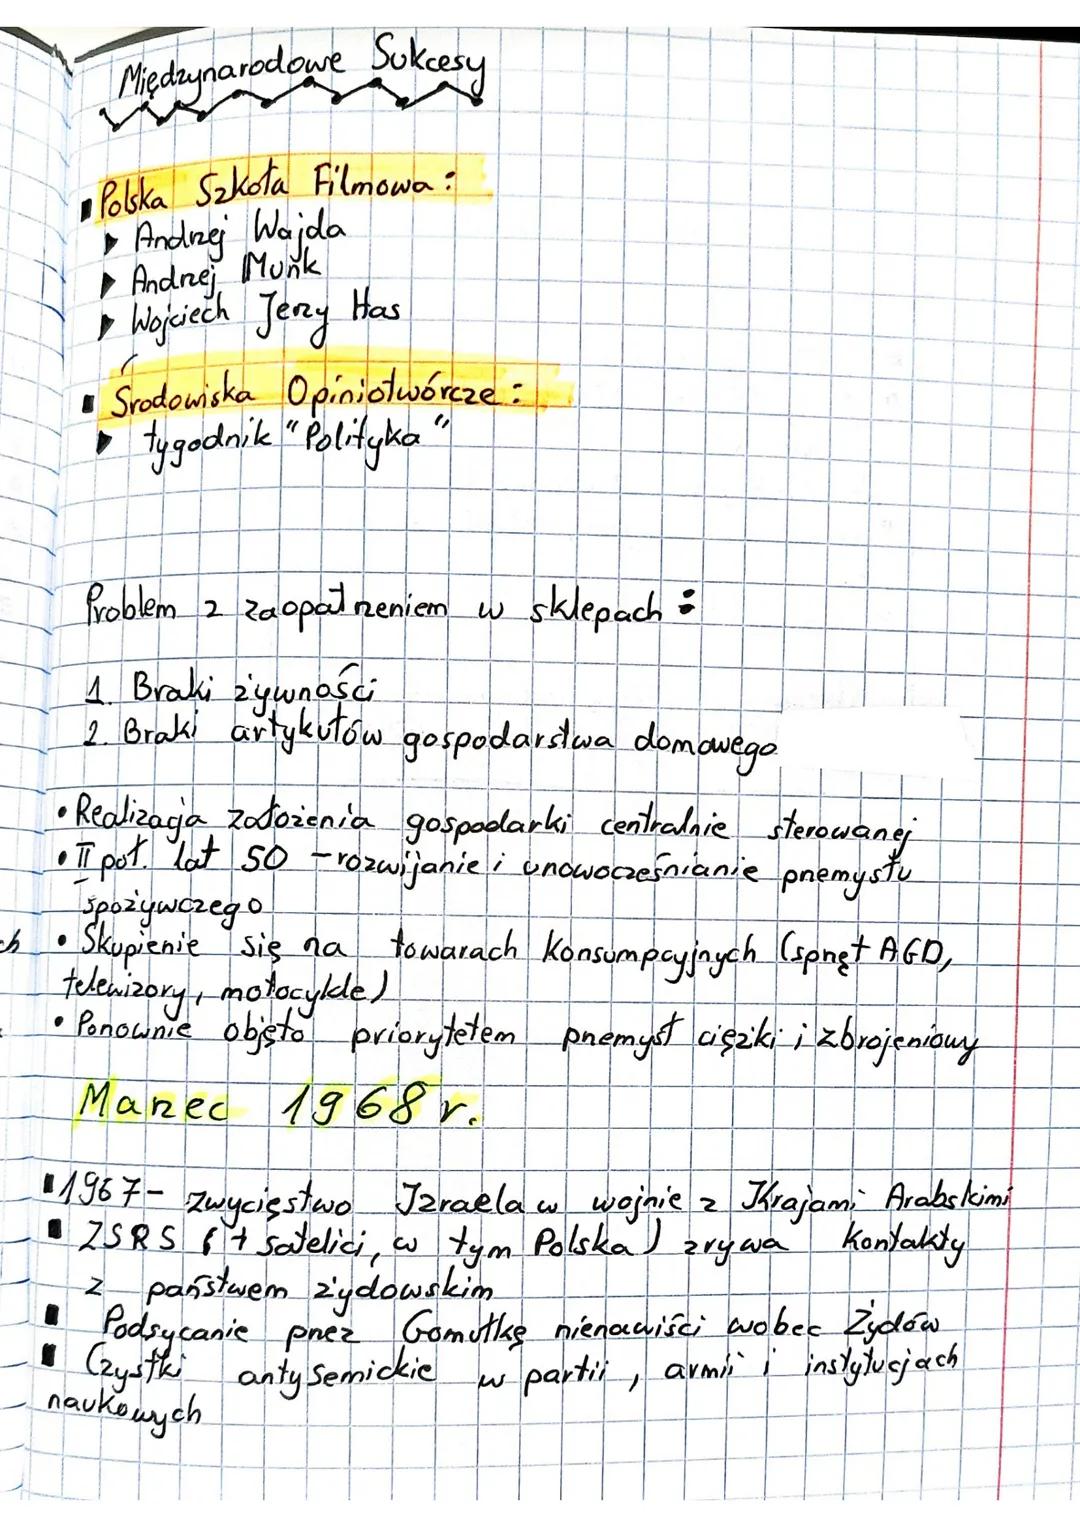 Międzynarodowe Sukcesy
▪ Polska Szkoła Filmowa :
▸ Andrzej Wajda
▸ Andrzej Munk
▸ Wojciech Jerzy Has
▪ Środowiska Opiniotwórcze :
▸ tygodnik "Polityka"
Problem z zaopatrzeniem w sklepach :
1. Braki żywności
2. Braki artykułów gospodarstwa domowego
• Realizacja założenia gospodarki centralnie sterowanej
• II poł. lat 50 – rozwijanie i unowocześnianie przemysłu
spożywczego
ch
• Skupienie się na towarach konsumpcyjnych (sprzęt AGD,
telewizory, motocykle)
• Ponownie objęto priorytetem przemysł ciężki i zbrojeniowy
Marzec 1968 r.
▪ 1967 – zwycięstwo Izraela w wojnie z Krajami Arabskimi
▪ ZSRS (+ satelici, w tym Polska) zrywa kontakty
z państwem żydowskim
▪ Podsycanie przez Gomułkę nienawiści wobec Żydów
▪ Czystki antysemickie w partii, armii i instytucjach
naukowych